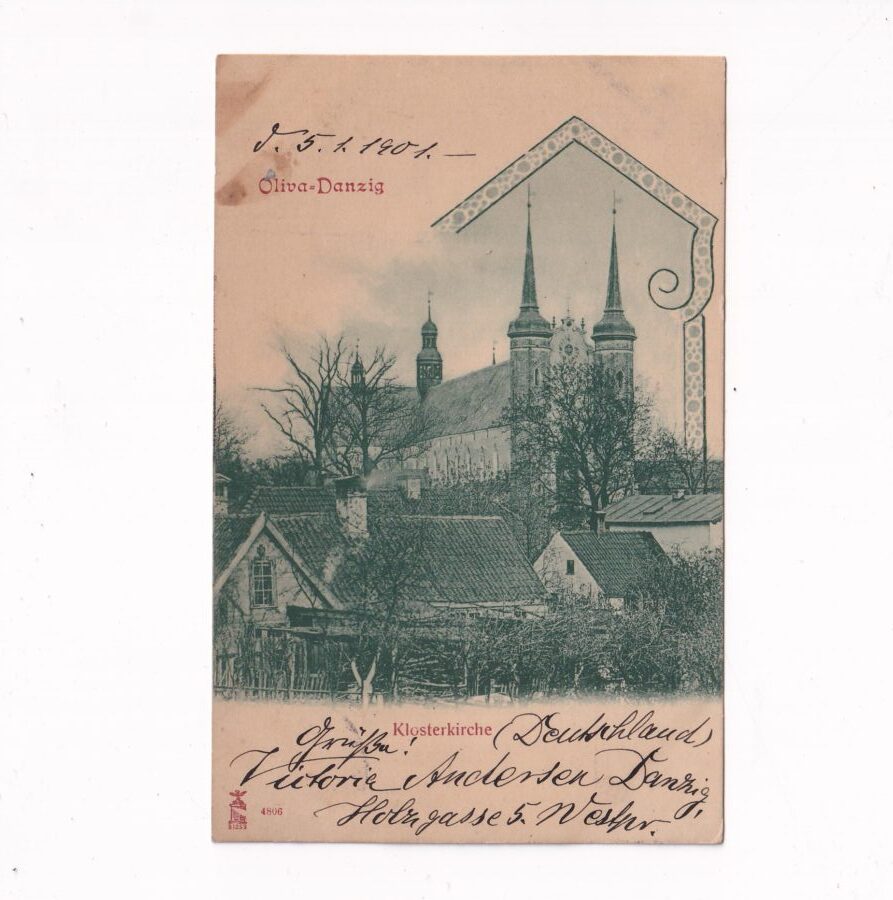 d. 5. 1. 1901. —
Oliva-Danzig
Klosterkirche (Deutschland)
Grüße!
Victoria Andersen Danzig,
Holzgasse 5. Westpr.
4806